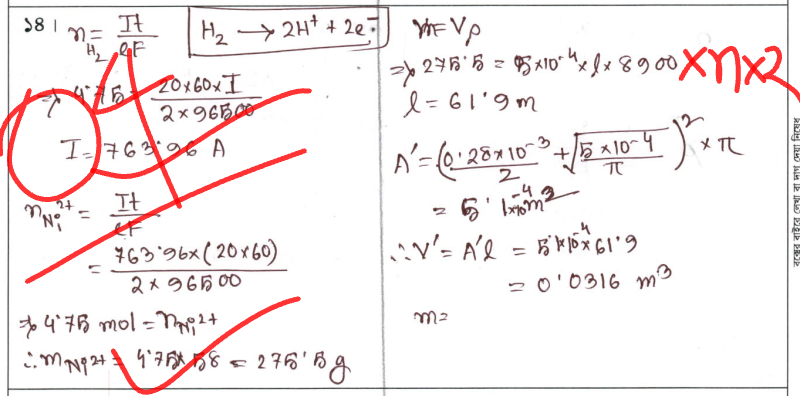 ১৪। n_H₂ = It/eF
H₂ → 2H⁺ + 2e⁻
⇒ 4.75 = 20×60×I / 2×96500
I = 763.96 A
n_Ni²⁺ = It/eF
= 763.96×(20×60) / 2×96500
⇒ 4.75 mol = n_Ni²⁺
∴ m_Ni²⁺ = 4.75×58 = 275.5 g
m = Vρ
⇒ 275.5 = 5×10⁻⁴×l×8900 ×η×2
l = 61.9 m
A′ = (0.28×10⁻³/2 + √(5×10⁻⁴/π))² × π
= 5.1×10⁻⁴ m²
∴ V′ = A′l = 5.1×10⁻⁴×61.9
= 0.0316 m³
m =
বক্সের বাইরে লেখা বা দাগ দেয়া নিষেধ